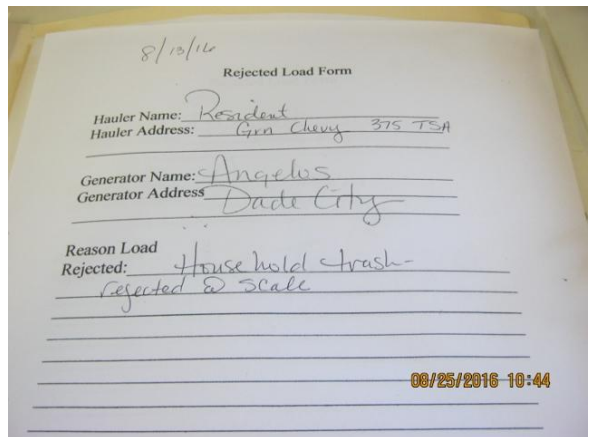 8/13/16
Rejected Load Form
Hauler Name: Resident
Hauler Address: Grn Chevy 375 TSA
Generator Name: Angelos
Generator Address Dade City
Reason Load
Rejected: Household trash-
rejected @ scale
08/25/2016 10:44